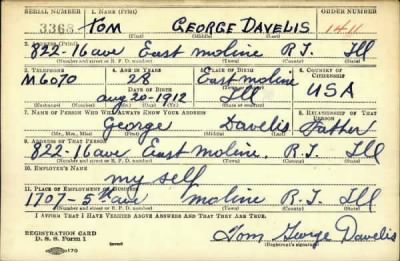 SERIAL NUMBER 1. NAME (Print) ORDER NUMBER
3368 TOM GEORGE DAVELIS 1411
(First) (Middle) (Last)
2. ADDRESS (Print)
822-16 ave East moline R.I. Ill
(Number and street or R. F. D. number) (Town) (County) (State)
3. TELEPHONE 4. AGE IN YEARS 5. PLACE OF BIRTH 6. COUNTRY OF CITIZENSHIP
M6070 28 East moline
DATE OF BIRTH
aug 20-1912 Ill USA
(Exchange) (Number) (Mo.) (Day) (Yr.) (State or country)
7. NAME OF PERSON WHO WILL ALWAYS KNOW YOUR ADDRESS 8. RELATIONSHIP OF THAT PERSON
George Davelis Father
(Mr., Mrs., Miss) (First) (Middle) (Last)
9. ADDRESS OF THAT PERSON
822-16 ave East moline. R.I. Ill
(Number and street or R. F. D. number) (Town) (County) (State)
10. EMPLOYER'S NAME
my self
11. PLACE OF EMPLOYMENT OR BUSINESS
1707-5th ave moline R.I. Ill
(Number and street or R. F. D. number) (Town) (County) (State)
I AFFIRM THAT I HAVE VERIFIED ABOVE ANSWERS AND THAT THEY ARE TRUE.
REGISTRATION CARD
D. S. S. Form 1
Tom George Davelis
(Registrant's signature)